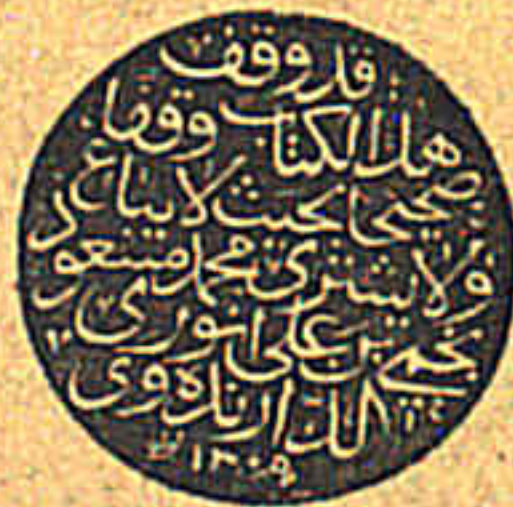 قد وقف
هذا الكتاب وقفا
صحيحا بحيث لا يباع
ولا يشترى محمد مسعود
نجمي بن علي انوري
الدارنده وي
١٣٠٩